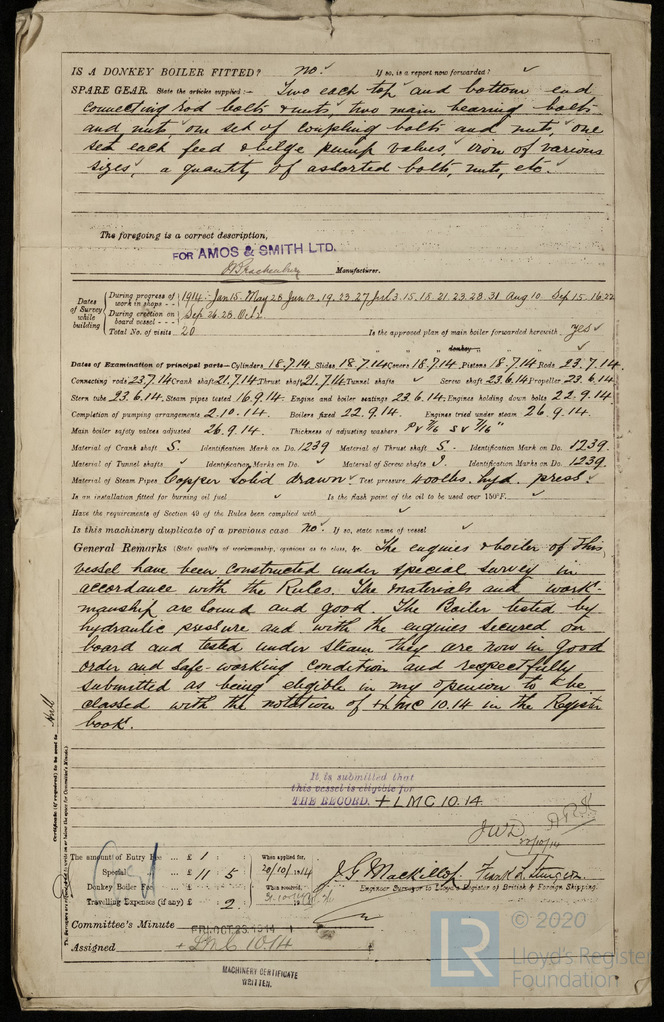 IS A DONKEY BOILER FITTED? no. If so, is a report now forwarded?
SPARE GEAR. State the articles supplied:— Two each top and bottom end
connecting rod bolts & nuts, two main bearing bolts
and nuts, one set of coupling bolts and nuts, one
set each feed & bilge pump valves, iron of various
sizes, a quantity of assorted bolts, nuts, etc.
The foregoing is a correct description,
FOR AMOS & SMITH LTD.
Manufacturer.
Dates of Survey while building
During progress of work in shops - - 1914:- Jan 15. May 28 Jun 12. 19. 23. 27 Jul 3. 15. 18. 21. 23. 28. 31 Aug 10 Sep 15. 16. 22
During erection on board vessel - - - Sep 26. 28. Oct 2
Total No. of visits 20 Is the approved plan of main boiler forwarded herewith yes
" " " donkey "
Dates of Examination of principal parts—Cylinders 18.7.14 Slides 18.7.14 Covers 18.7.14 Pistons 18.7.14 Rods 23.7.14.
Connecting rods 23.7.14 Crank shaft 21.7.14 Thrust shaft 21.7.14 Tunnel shafts Screw shaft 23.6.14 Propeller 23.6.14
Stern tube 23.6.14 Steam pipes tested 16.9.14 Engine and boiler seatings 23.6.14 Engines holding down bolts 22.9.14
Completion of pumping arrangements 2.10.14 Boilers fixed 22.9.14 Engines tried under steam 26.9.14
Main boiler safety valves adjusted 26.9.14 Thickness of adjusting washers P V 7/16 S V 7/16"
Material of Crank shaft S. Identification Mark on Do. 1239 Material of Thrust shaft S. Identification Mark on Do. 1239.
Material of Tunnel shafts Identification Marks on Do. Material of Screw shafts I. Identification Marks on Do. 1239.
Material of Steam Pipes Copper Solid drawn Test pressure 400 lbs. hyd. press
Is an installation fitted for burning oil fuel Is the flash point of the oil to be used over 150°F.
Have the requirements of Section 49 of the Rules been complied with
Is this machinery duplicate of a previous case no. If so, state name of vessel
General Remarks (State quality of workmanship, opinions as to class, &c. The engines & boiler of this
vessel have been constructed under special survey in
accordance with the Rules. The materials and work-
manship are sound and good. The Boiler tested by
hydraulic pressure and with the engines secured on
board and tested under steam they are now in good
order and safe working condition and respectfully
submitted as being eligible in my openion to be
classed with the notation of + LMC 10.14 in the Register
book.
It is submitted that
this vessel is eligible for
THE RECORD. + LMC 10.14.
JWD
22/10/14
Certificate (if required) to be sent to Hull
The amount of Entry Fee .. £ 1 : : When applied for,
Special .. £ 11 : 5 : 20/10/1914
Donkey Boiler Fee .. £ : : When received,
Travelling Expenses (if any) £ : 2 :
J. G. Mackillop.
Engineer Surveyor to Lloyd's Register of British & Foreign Shipping.
Committee's Minute FRI. OCT. 23. 1914
Assigned + LMC 10.14
MACHINERY CERTIFICATE
WRITTEN.
LR
© 2020
Lloyd's Register
Foundation